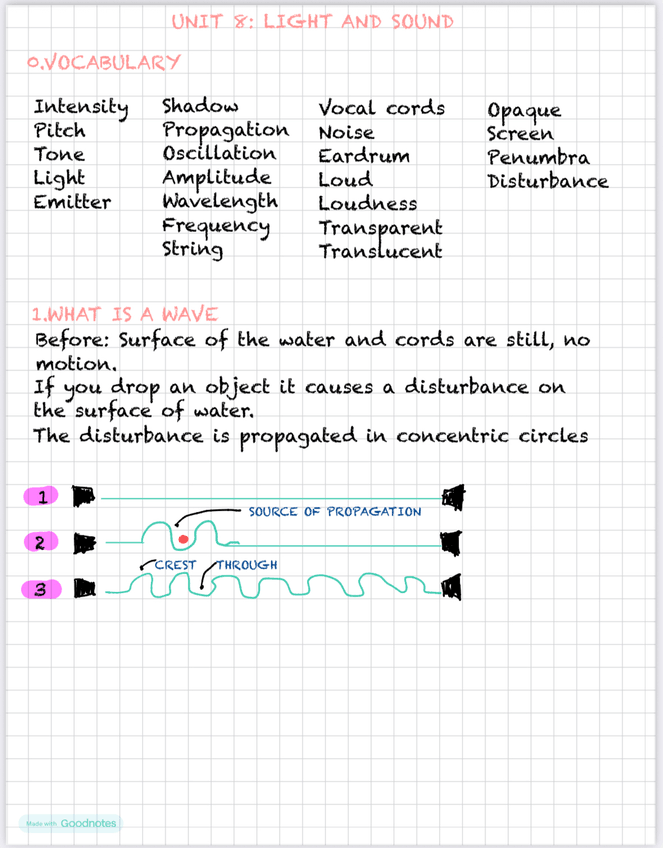 UNIT 8: LIGHT AND SOUND
0.VOCABULARY
Intensity
Pitch
Tone
Light
Emitter
Shadow
Propagation
Oscillation
Amplitude
Wavelength
Frequency
String
Vocal cords
Noise
Eardrum
Loud
Loudness
Transparent
Translucent
Opaque
Screen
Penumbra
Disturbance
1.WHAT IS A WAVE
Before: Surface of the water and cords are still, no
motion.
If you drop an object it causes a disturbance on
the surface of water.
The disturbance is propagated in concentric circles
1
SOURCE OF PROPAGATION
2
CREST THROUGH
3
Made with Goodnotes